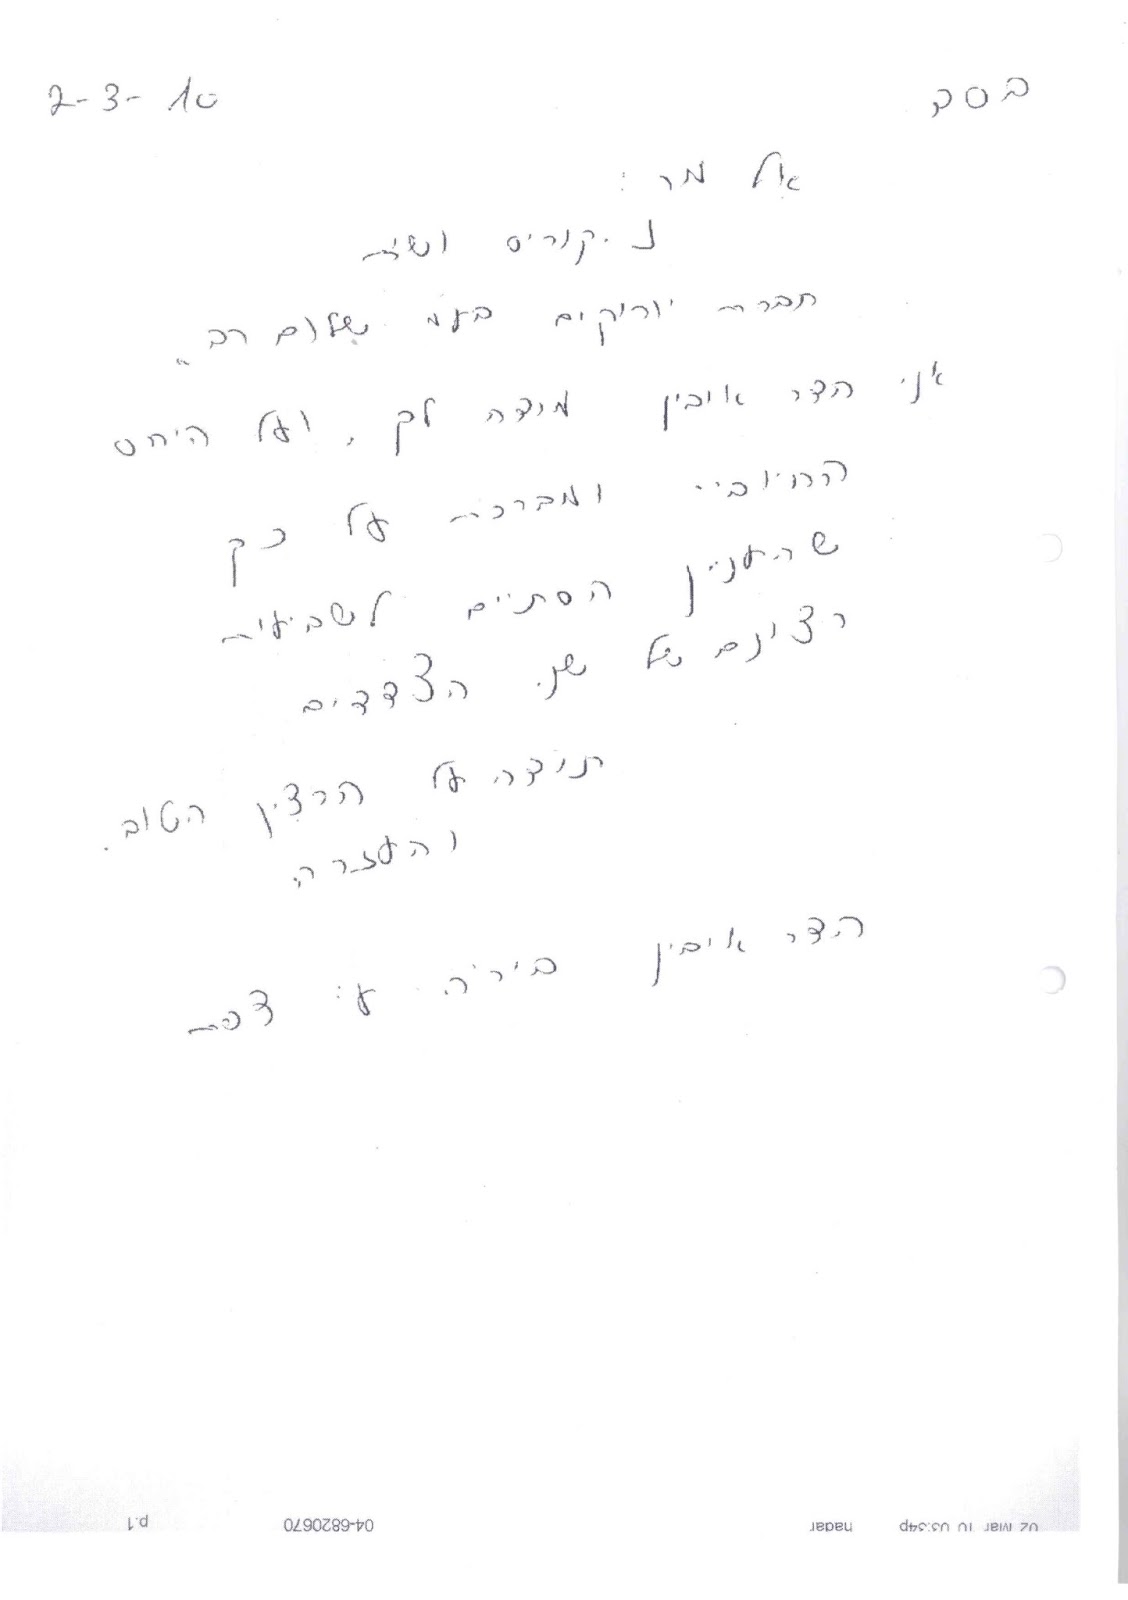 בסד 2-3-10
אל מר:
נ. קנוריס ושות
חברת יוריקים בעמ שלום רב,,
אני הדר אייבין מודה לך, ועל היחס
החיובי ומברכת על כך
שהעניין הסתיים לשביעות
רצונם של שני הצדדים
תודה על הרצון הטוב.
והעזרה
הדר אייבין ביריה
02 Mar 10 03:34p hadar 04-6820670 p.1